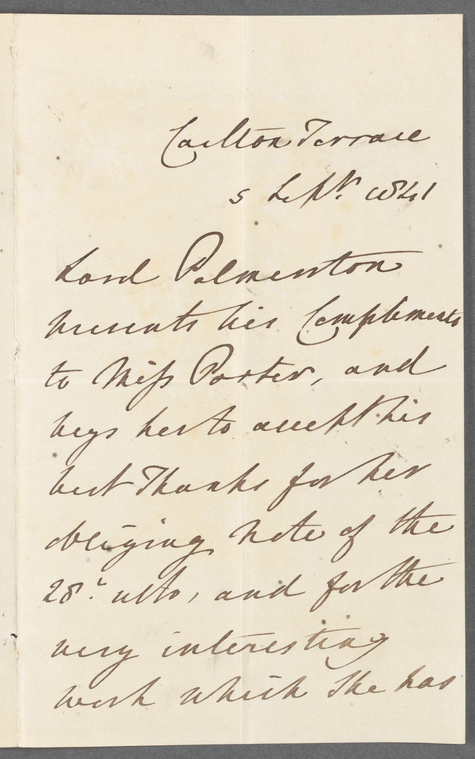 Carlton Terrace
5 Septr. 1841
Lord Palmerston
presents his Compliments
to Miss Porter, and
begs her to accept his
best Thanks for her
obliging Note of the
28th. ulto, and for the
very interesting
work which She has